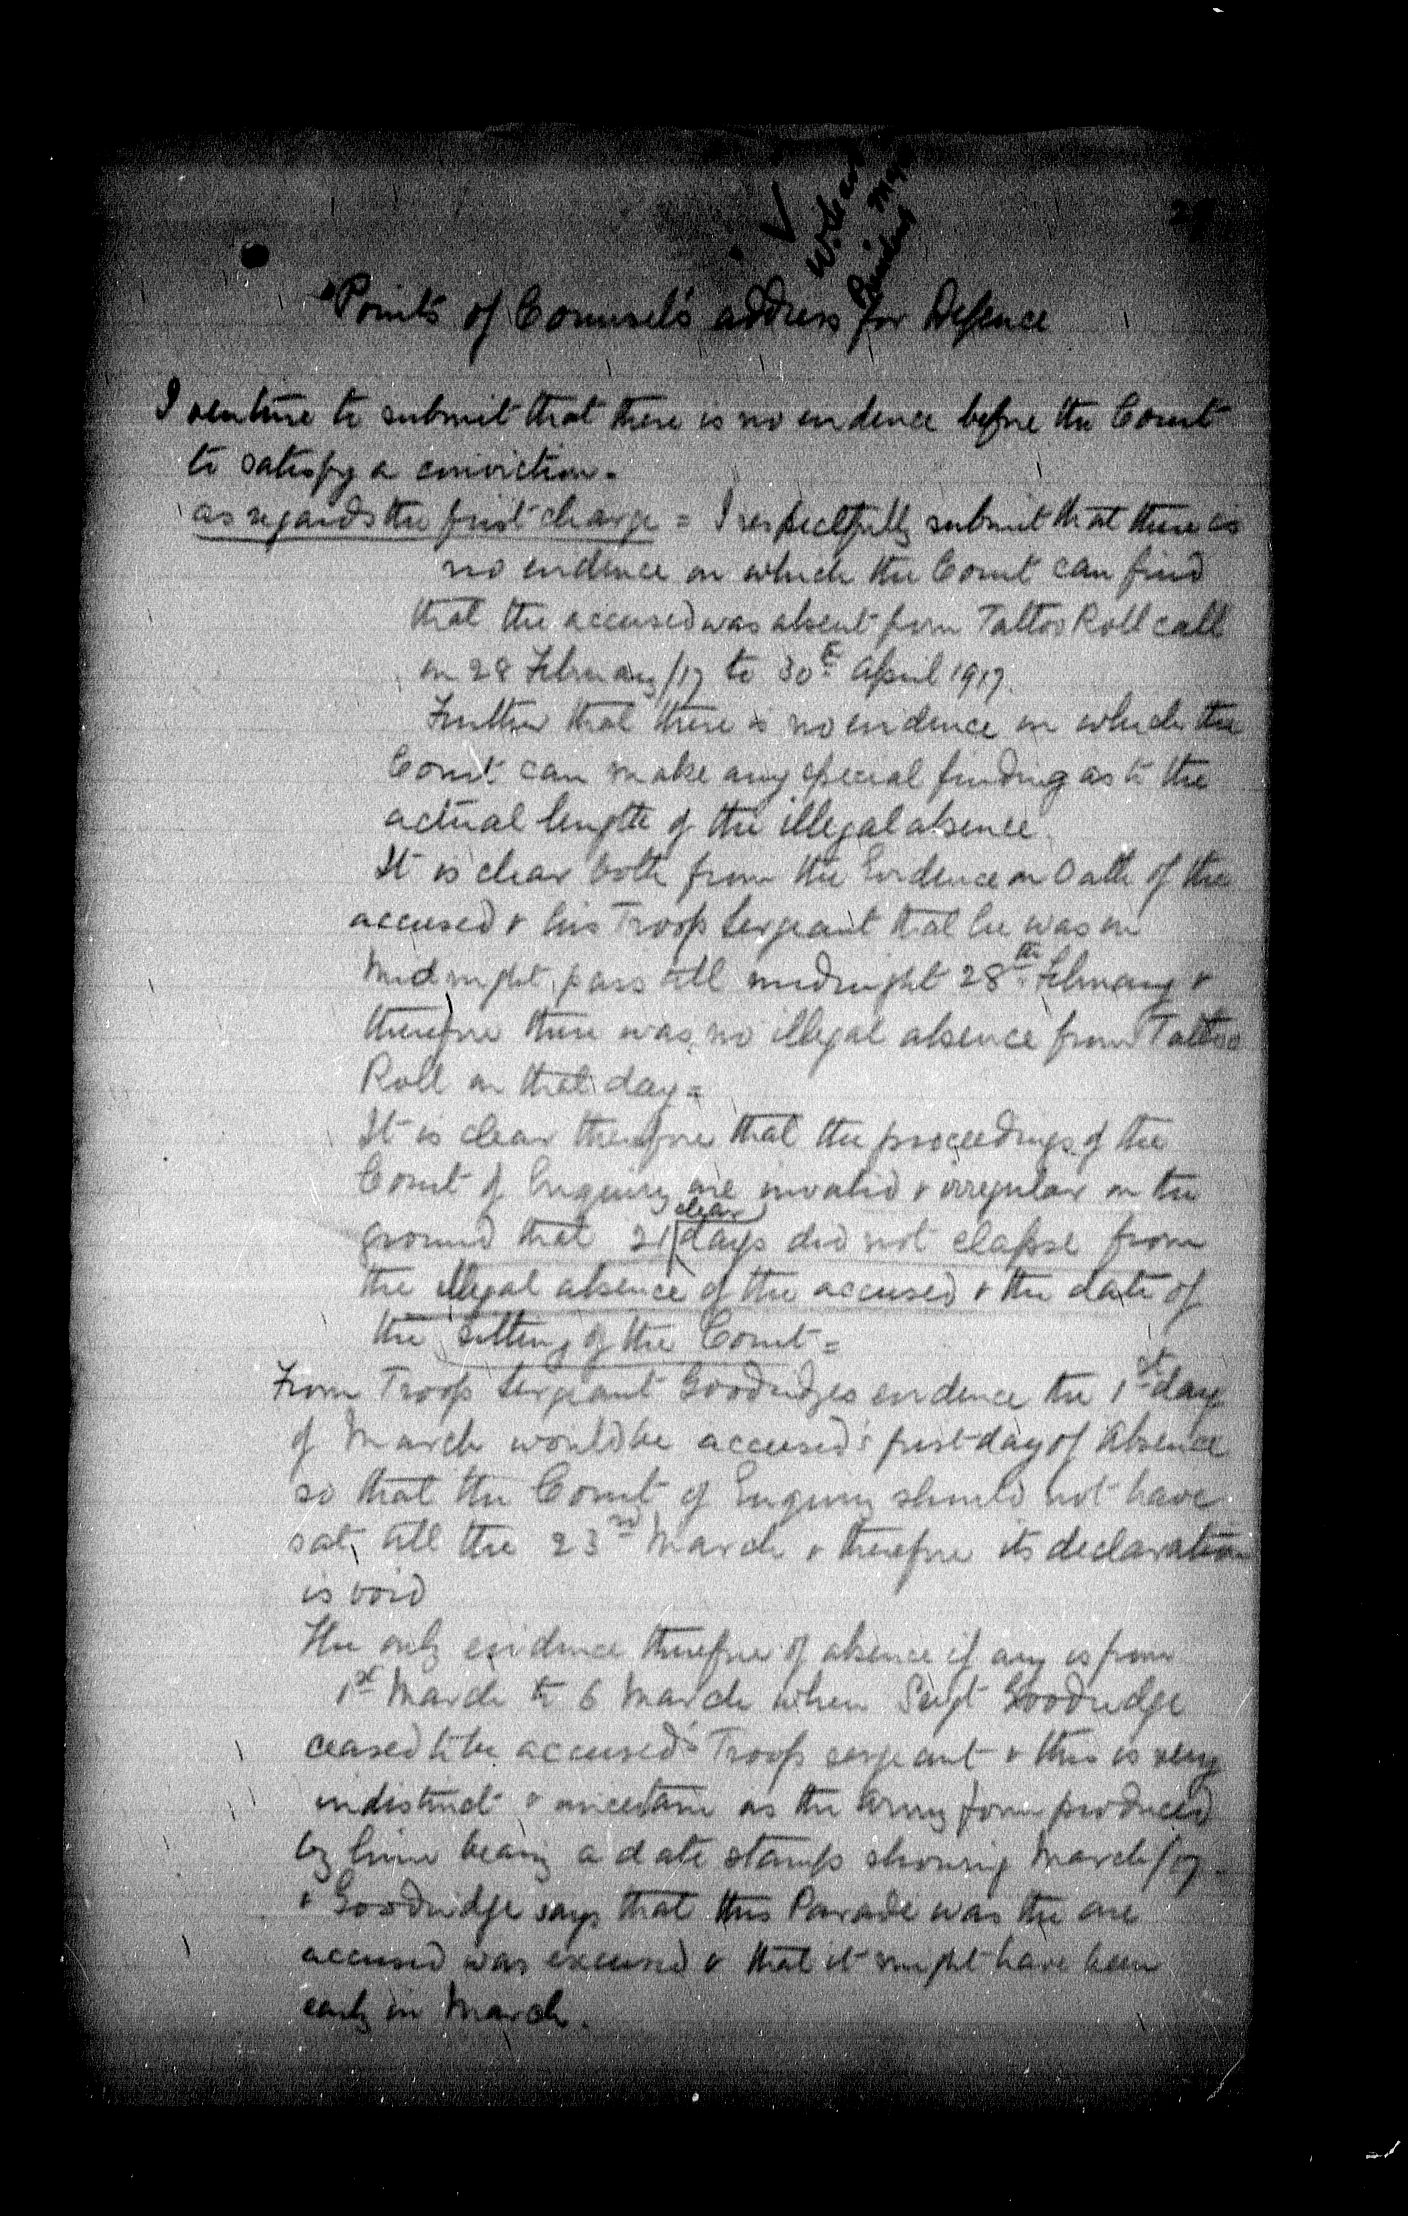 Points of Counsel's address for Defence
I venture to submit that there is no evidence before the Court
to satisfy a conviction.
as regards the first charge = I respectfully submit that there is
no evidence on which the Court can find
that the accused was absent from Tattoo Roll call
on 28 February/17 to 30th April 1917.
Further that there is no evidence on which the
Court can make any special finding as to the
actual length of the illegal absence.
It is clear both from the Evidence on Oath of the
accused & his Troop Sergeant that he was on
Midnight pass till midnight 28th February &
therefore there was no illegal absence from Tattoo
Roll on that day =
It is clear therefore that the proceedings of the
Court of Enquiry are invalid & irregular on the
ground that 21 clear days did not elapse from
the illegal absence of the accused & the date of
the Sitting of the Court =
From Troop Sergeant Goodridges evidence the 1st day
of March would be accused's first day of Absence
so that the Court of Enquiry should not have
sat till the 23rd March & therefore its declaration
is void
The only evidence therefore of absence if any is from
1st March to 6 March when Sergt Goodridge
ceased to be accused's Troop sergeant & this is very
indistinct & uncertain as the Army form produced
by him bears a date stamp showing March/17
& Goodridge says that this Parade was the one
accused was excused & that it might have been
early in March.